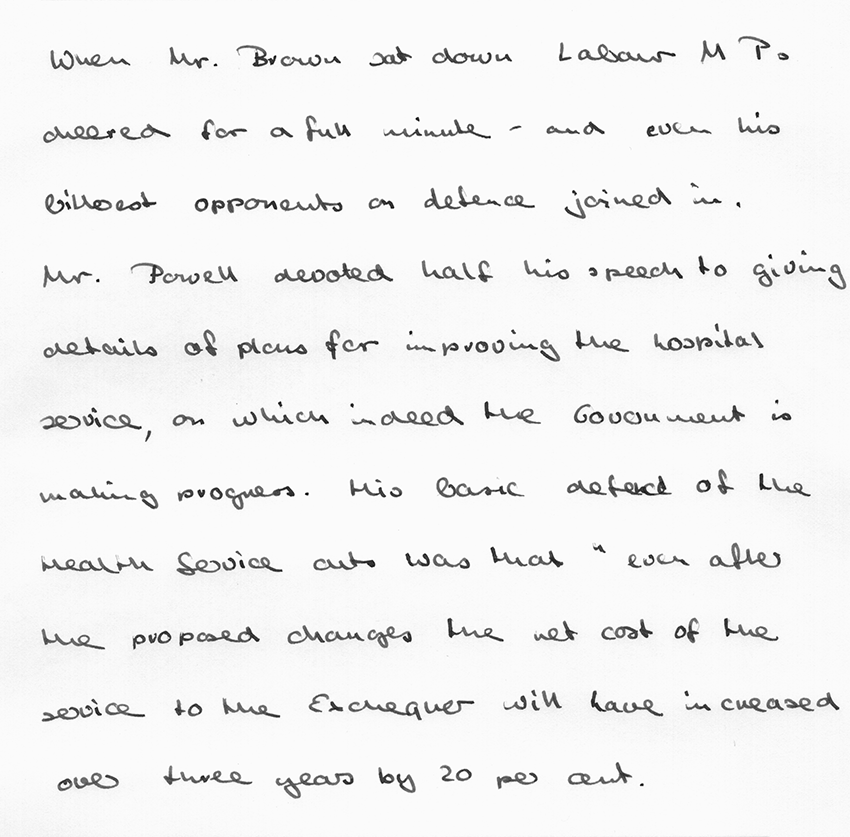 When Mr. Brown sat down Labour M Ps
cheered for a full minute - and even his
bitterest opponents on defence joined in.
Mr. Powell devoted half his speech to giving
details of plans for improving the hospital
service, on which indeed the Government is
making progress. His basic defect of the
Health Service cuts was that " even after
the proposed changes the net cost of the
service to the Exchequer will have increased
over three years by 20 per cent.